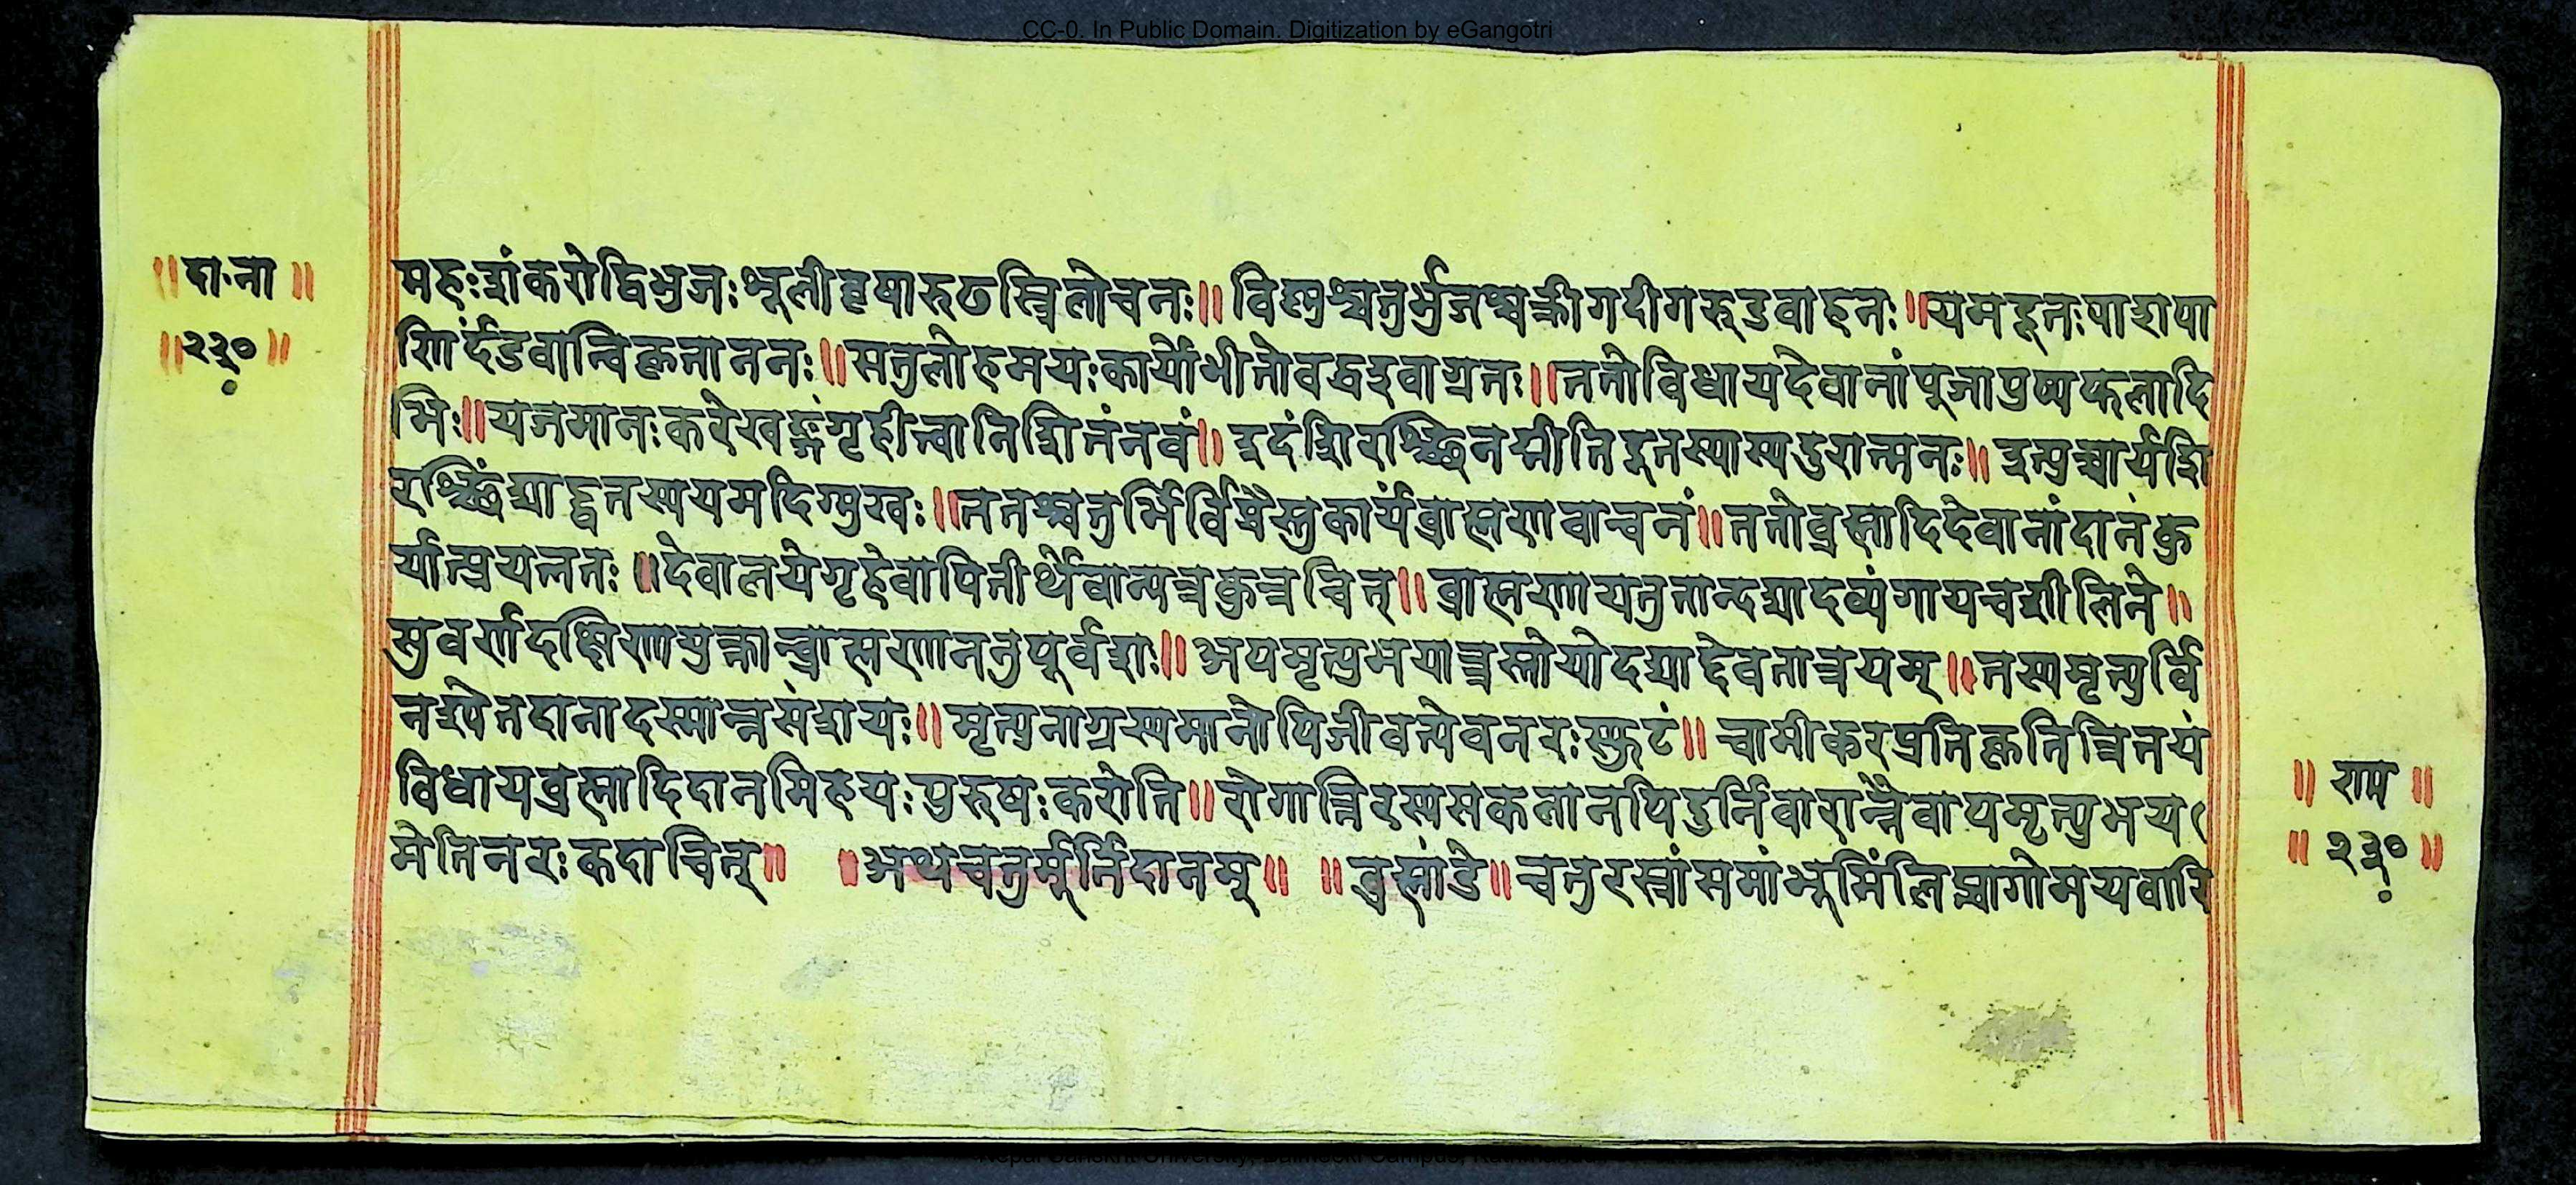 CC-0. In Public Domain. Digitization by eGangotri
॥दा॰ना॥
॥२३०॥
महःशंकरोद्विभुजःशूलीवृषारुढस्त्रिलोचनः॥विष्णुश्चतुर्भुजश्चक्रीगदीगरूडवाहनः॥यमदूतःपाशपा
णिर्दंडवान्विकृताननः॥सतुलोहमयःकार्योभीतोवद्धइवाग्रतः॥ततोविधायदेवानांपूजापुष्पफलादि
भिः॥यजमानःकरेखङ्गंगृहीत्वानिशितंनवं॥इदंशिरश्छिनद्मीतिदूतस्यास्यदुरात्मनः॥इत्युच्चार्यशि
रश्छिंद्याद्दूतस्ययमदिग्मुखः॥ततश्चतुर्भिर्विप्रैस्तुकार्यंब्राह्मणवाचनं॥ततोब्रह्मादिदेवानांदानंकु
र्यात्प्रयत्नतः॥देवालयेगृहेवापितीर्थेवान्यत्रकुत्रचित्॥ब्राह्मणायतुतान्दद्यादव्यंगायचशीलिने॥
सुवर्णदक्षिणायुक्तान्ब्राह्मणानतुपूर्वशः॥अयमृत्युभयात्त्रस्तोयोदद्याद्देवतात्रयम्॥तस्यमृत्युर्वि
नश्येतदानादस्मान्नसंशयः॥मृत्युनाग्रस्यमानोपिजीवत्येवनरःस्फुटं॥चामीकरप्रतिकृतित्रितयं
विधायब्रह्मादिदानमिहयःपुरुषःकरोति॥रोगान्निरस्यसकलानपिदुर्निवारान्नैवायमृत्युभय
मेतिनरःकदाचित्॥ ॥अथचतुर्मूर्तिदानम्॥ ॥ब्रह्मांडे॥चतुरस्त्रांसमांभूमिंलिप्त्वागोमयवारि
॥राम॥
॥२३०॥